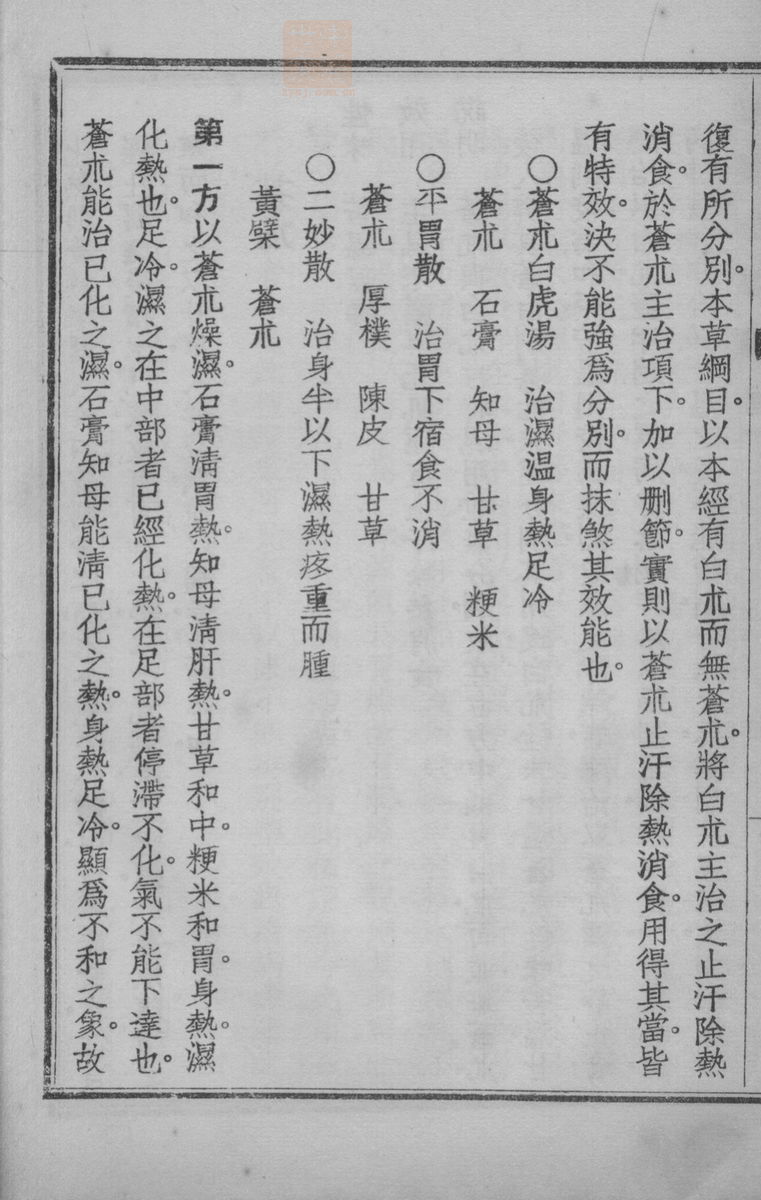 復有所分別。本草綱目。以本經有白朮而無蒼朮。將白朮主治之止汗除熱
消食。於蒼朮主治項下。加以删節。實則以蒼朮止汗除熱消食。用得其當。皆
有特效。決不能強爲分別。而抹煞其效能也。
○蒼朮白虎湯　治濕温身熱足冷
蒼朮　石膏　知母　甘草　粳米
○平胃散　治胃下宿食不消
蒼朮　厚樸　陳皮　甘草
○二妙散　治身半以下濕熱疼重而腫
黃檗　蒼朮
第一方以蒼朮燥濕。石膏淸胃熱。知母淸肝熱。甘草和中。粳米和胃。身熱。濕
化熱也。足冷。濕之在中部者已經化熱。在足部者停滯不化。氣不能下達也。
蒼朮能治已化之濕。石膏知母能淸已化之熱。身熱足冷。顯爲不和之象。故